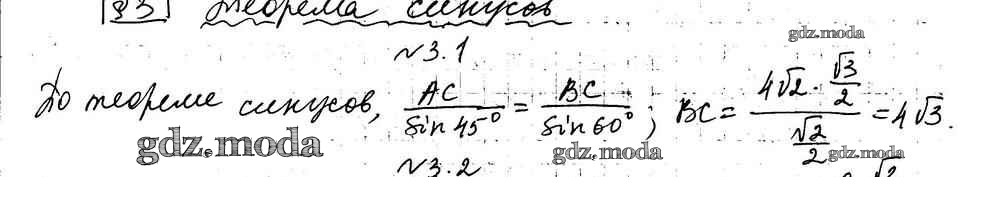 §3 Теорема синусов
gdz.moda
№3.1
По теореме синусов, AC/sin 45° = BC/sin 60°; BC = (4√2 · √3/2)/(√2/2) = 4√3.
gdz.moda gdz.moda gdz.moda
№3.2